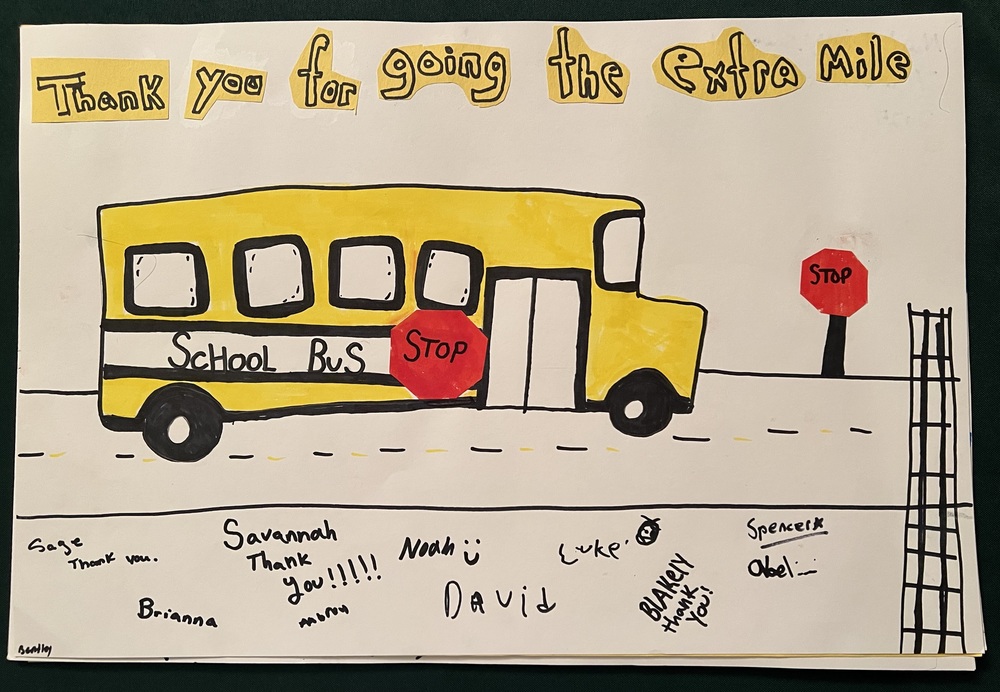 Thank you for going the extra Mile
STOP
SCHOOL BUS
STOP
Sage
Thank you.
Savannah
Thank
you!!!!!
Noah
Luke
Spencer
Abel
BLAKELY
thank
you!
David
Brianna
Bentley